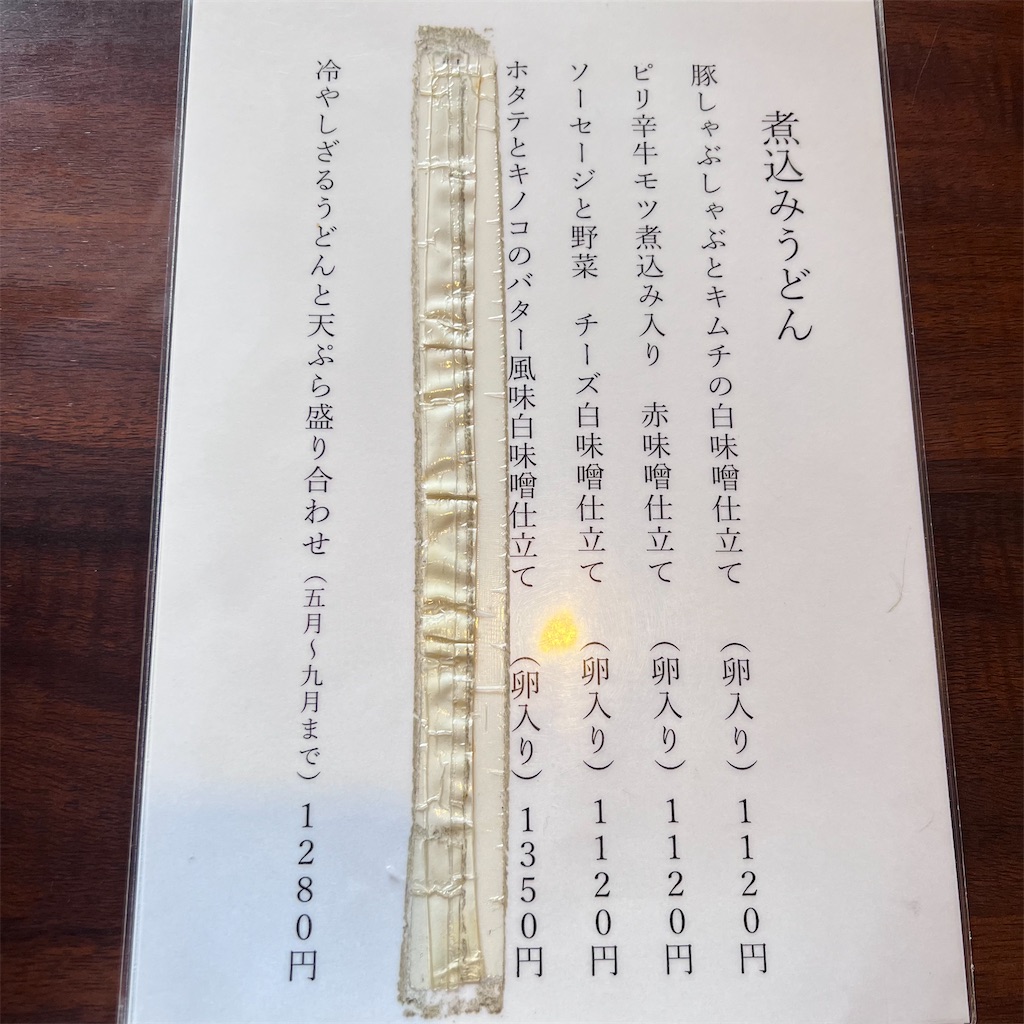 煮込みうどん
豚しゃぶしゃぶとキムチの白味噌仕立て （卵入り） 1120円
ピリ辛牛モツ煮込み入り 赤味噌仕立て （卵入り） 1120円
ソーセージと野菜 チーズ白味噌仕立て （卵入り） 1120円
ホタテとキノコのバター風味白味噌仕立て （卵入り） 1350円
冷やしざるうどんと天ぷら盛り合わせ（五月〜九月まで） 1280円